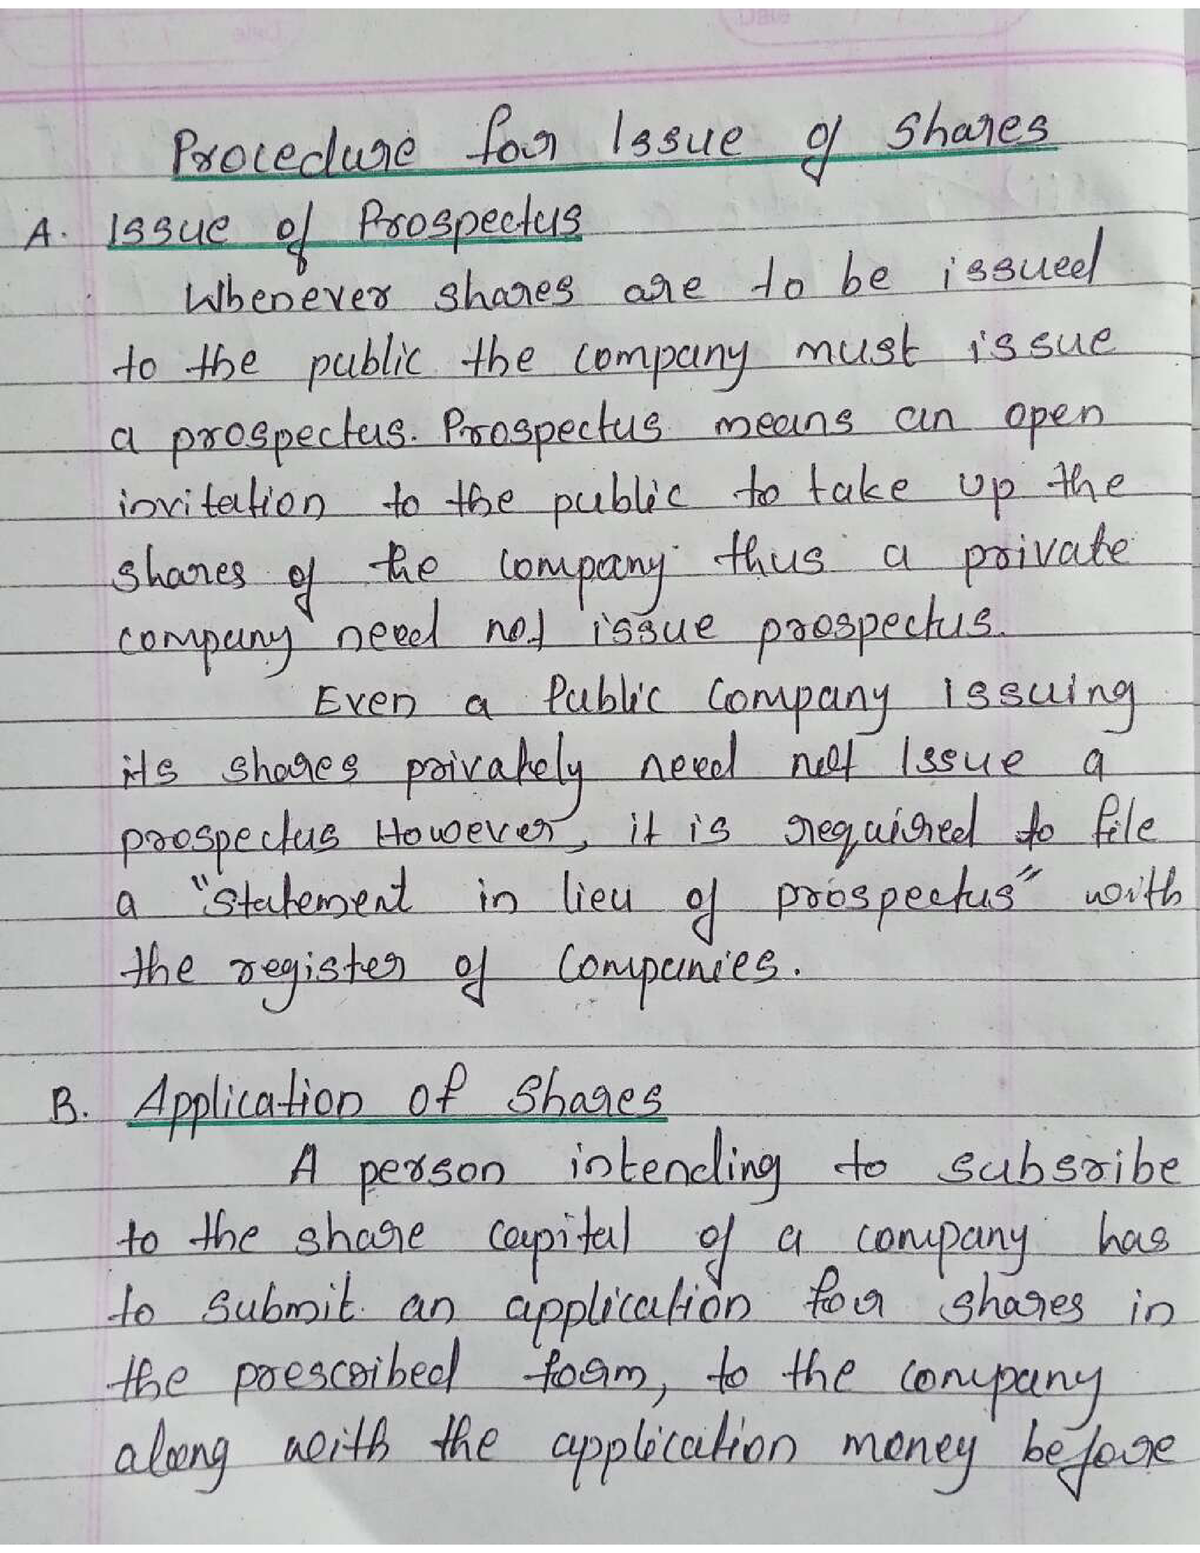 Procedure for Issue of Shares
A. Issue of Prospectus
Whenever shares are to be issued
to the public the company must issue
a prospectus. Prospectus means an open
invitation to the public to take up the
shares of the company thus a private
company need not issue prospectus.
Even a Public Company issuing
its shares privately need not Issue a
prospectus However, it is required to file
a "statement in lieu of prospectus" with
the register of Companies.
B. Application of Shares
A person intending to subsribe
to the share capital of a company has
to submit an application for shares in
the prescribed form, to the company
along with the application money before